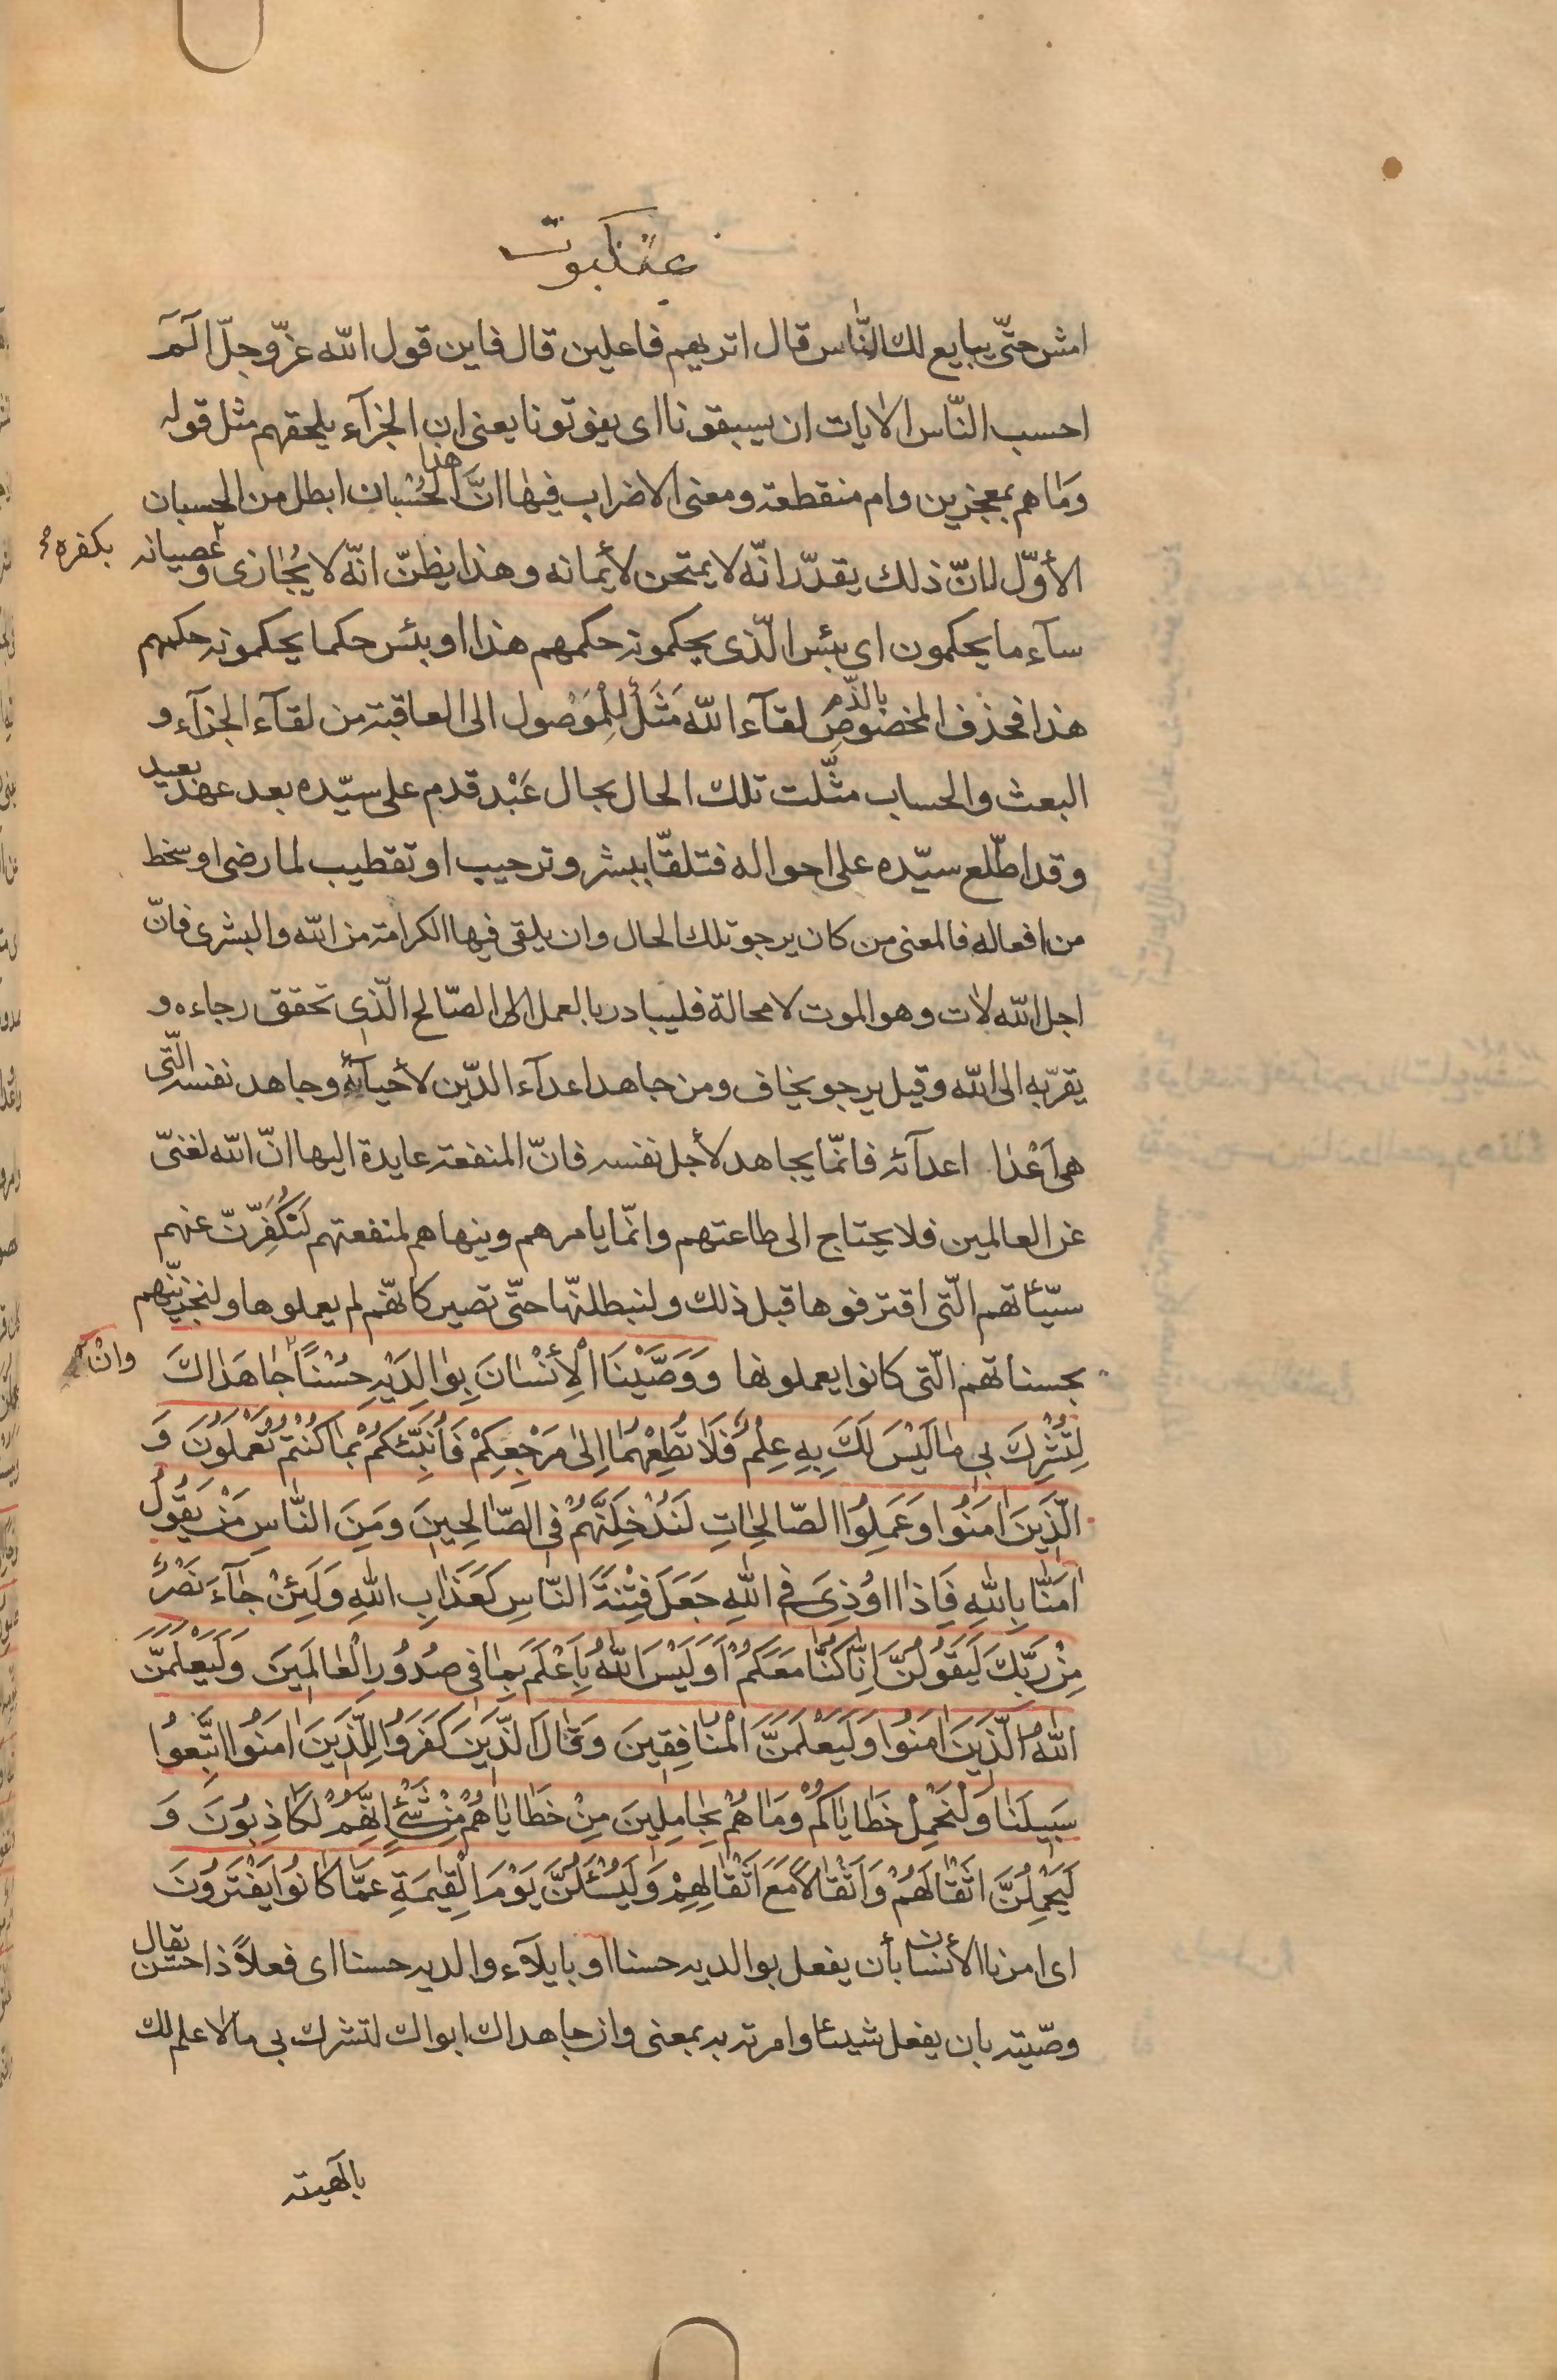 عنكبوت
امش حتّى يبايع لك النّاس قال اتريهم فاعلين قال فاين قول الله عزّ وجلّ الٓمٓ
احسب النّاس الايات ان يسبقونا اى يفوتونا يعنى ان الجزآء يلحقهم مثل قوله
وما هم بمعجزين وام منقطعة ومعنى الاضراب فيها انّ هذا الحُسْبان ابطل من الحسبان
الأوّل لانّ ذلك يقدّر انّه لا يمتحن لأيمانه وهذا يظنّ انّه لا يُجٰازى بكفره و عصيانه
سآء ما يحكمون اى بئس الّذى يحكمونه حكمهم هذا او بئس حكما يحكمونه حكمهم
هذا فحذف المخصوص بالذّم لقآء الله مَثَلٌ لِلْوصُول الى العاقبة من لقآء الجزآء و
البعث والحساب مثّلت تلك الحال بحال عَبْد قدم على سيّده بعد عهد بعيد
وقد اطّلع سيّده على احواله فتلقّا ببشر وترحيب او تقطيب لما رضى او سخط
من افعاله فالمعنى من كان يرجو تلك الحال وان يلقى فيها الكرامة من الله والبشرى فانّ
اجل الله لاٰت وهو الموت لا محالة فليبادر بالعمل الى الصّالح الّذى تحقق رجاءه و
يقربّه الى الله وقيل يرجو يخاف ومن جاهد اعدآء الدّين لأحيآئه وجاهد نفسه الّتى
هى اَعْدٰا اعدآئه فانّما يجاهد لأجل نفسه فانّ المنفعة عايدة اليها انّ الله لغنىّ
عن العالمين فلا يحتاج الى طاعتهم وانّما يامرهم وينهاهم لمنفعتهم لَنُكَفِّرَنّ عنهم
سيّئاتهم الّتى اقترفوها قبل ذلك ولنبطلنّها حتّى تصير كانّهم لم يعملوها ولنجزينّهم
بحسناتهم الّتى كانوا يعملونها وَوَصَّيْنَا الْأِنْسٰانَ بِوٰالِدَيْهِ حُسْنًا وانْ جٰاهَدٰاكَ
لِتُشْرِكَ بى مٰا لَيْسَ لَكَ بِهِ عِلْمٌ فَلاٰ تُطِعْهُمٰا اِلىٰ مَرْجِعِكُمْ فَاُنَبِّئُكُمْ بِمٰا كُنْتُمْ تَعْمَلُونَ وَ
الَّذينَ اٰمَنُوا وَعَمِلُوا الصّٰالِحٰاتِ لَنُدْخِلَنَّهُمْ فِى الصّٰالِحينَ وَمِنَ النّٰاسِ مَنْ يَقُولُ
اٰمَنّٰا بِاللّٰهِ فَاِذٰا اوُذِىَ فِى اللّٰهِ جَعَلَ فِتْنَةَ النّٰاسِ كَعَذٰابِ اللّٰهِ وَلَئِنْ جٰآءَ نَصْرٌ
مِنْ رَبِّكَ لَيَقُولُنَّ اِنّٰا كُنّٰا مَعَكُمْ اَوَلَيْسَ اللّٰهُ بِاَعْلَمَ بِمٰا فى صُدُورِ الْعٰالَمينَ وَلَيَعْلَمَنّ
اللّٰهُ الَّذينَ اٰمَنُوا وَلَيَعْلَمَنَّ الْمُنٰافِقينَ وَقٰالَ الَّذينَ كَفَرُوا لِلَّذينَ اٰمَنُوا اتَّبِعوُا
سَبيلَنٰا وَلْنَحْمِلْ خَطٰايٰاكُمْ وَمٰا هُمْ بِحٰامِلينَ مِنْ خَطٰايٰاهُمْ مِنْ شَىْءٍ اِنَّهُمْ لَكٰاذِبُونَ وَ
لَيَحْمِلُنَّ اَثْقٰالَهُمْ وَاَثْقٰالاً مَعَ اَثْقٰالِهِمْ وَلَيُسْئَلُنَّ يَوْمَ الْقِيٰمَةِ عَمّٰا كٰانُوا يَفْتَرُونَ
اى امرنا الأنسان بأن يفعل بوالديه حسنا او بايلآء والديه حسنا اى فعلاً ذا حسن يقال
وصّيته بان يفعل شيئا وامرته به بمعنى وان جاهداك ابواك لتشرك بى ما لا علم لك
بالهيته